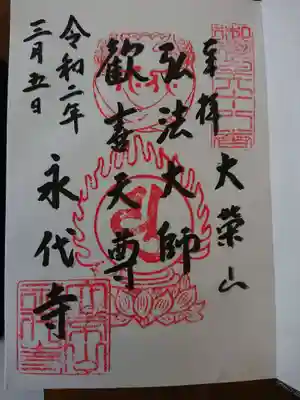 奉拝
大榮山
弘法大師
歓喜天尊
永代寺
令和二年
三月五日